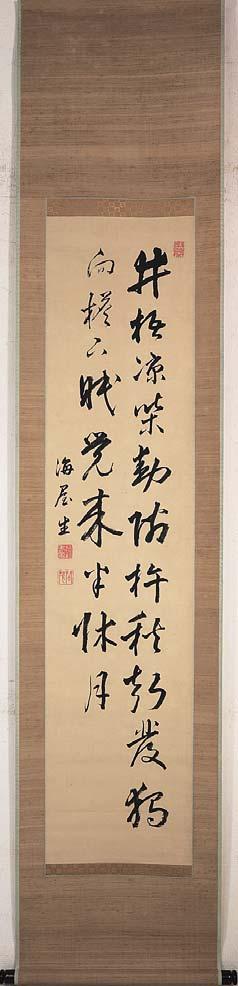 井梧涼葉動隣杵秋声發獨
向檐下眠覚来半牀月
海屋生